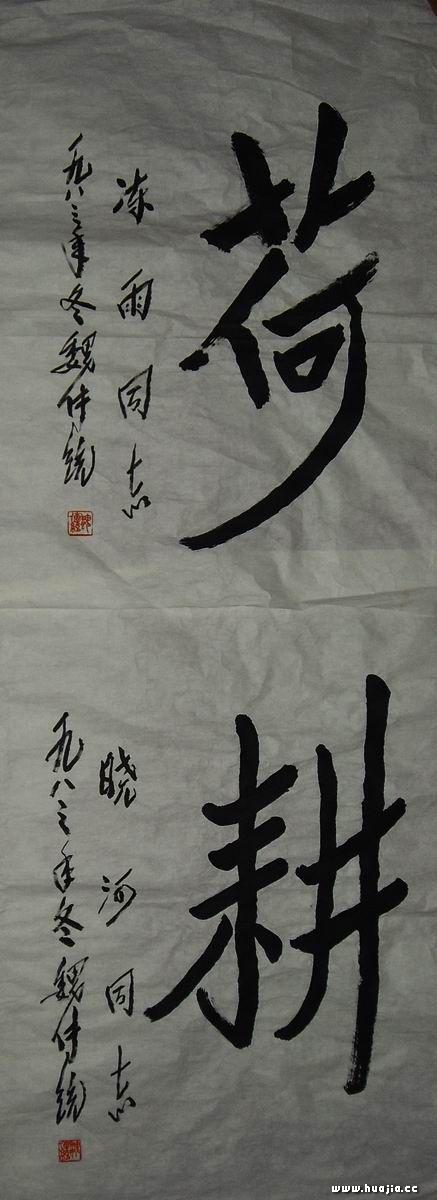 荷
冻雨同志
一九八三年冬魏传统
耕
晓河同志
一九八三年冬魏传统
www.huajia.cc